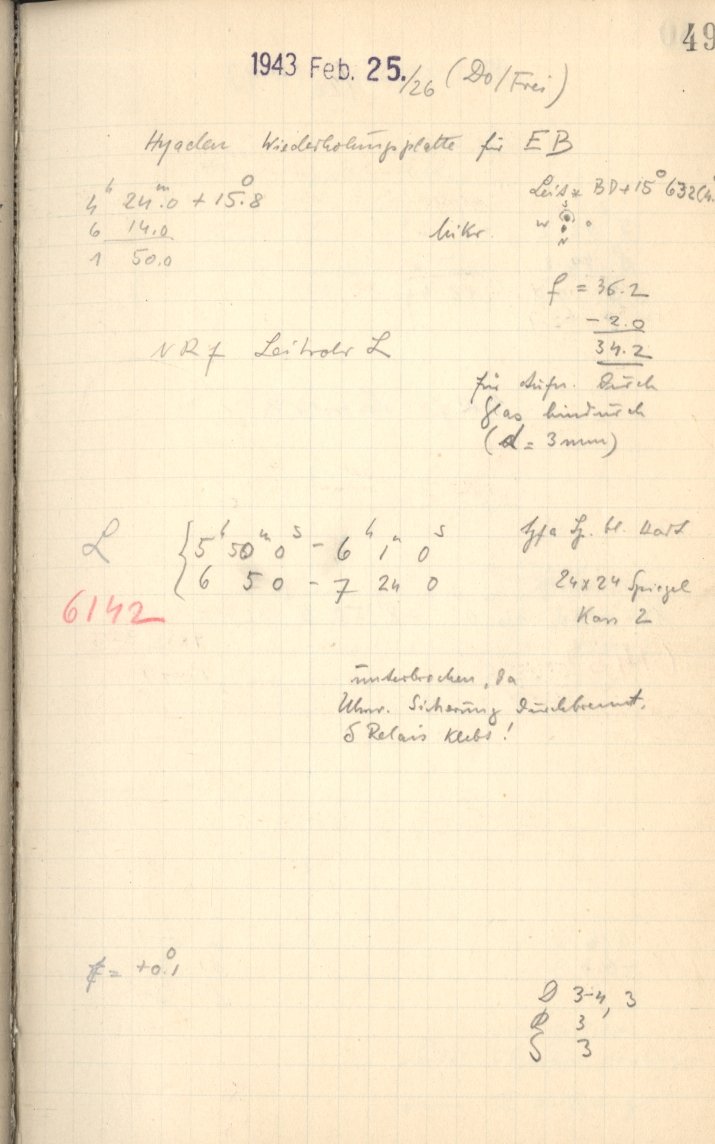 49
1943 Feb. 25./26 (Do/Frei)
Hyaden Wiederholungsplatte für EB
4ʰ 24ᵐ.0 + 15°.8
Leit* BD+15° 632
6 14.0
S
W O
N
1 50.0
f = 36.2
- 2.0
34.2
Leitrohr L
für Aufn. durch
Glas hindurch
(d = 3mm)
L
{5ʰ 50ᵐ 0ˢ - 6ʰ 1ᵐ 0ˢ
6 5 0 - 7 24 0
6142
24x24 Spiegel
Kass 2
unterbrochen, da
Uhrw. Sicherung durchbrennt.
δ Relais klebt!
t = +0°.1
D 3-4, 3
R 3
S 3